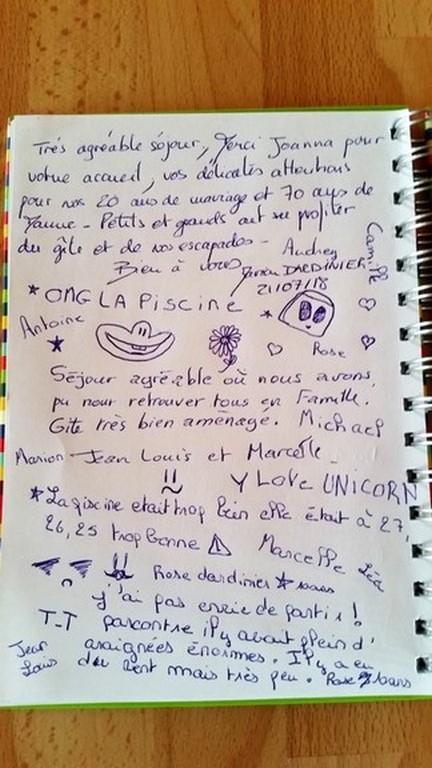 Très agréable séjour, Merci Joanna pour
votre accueil, vos délicates attentions
pour nos 20 ans de mariage et 70 ans de
Mamie - Petits et grands ont su profiter
du gîte et de nos escapades -
Audrey
Camille
Bien à vous,
DARDINIER
21/07/18
* OMG LA PISCINE
Antoine
Rose
Séjour agréable où nous avons
pu nour retrouver tous en Famille.
Gite très bien aménagé. Michael
Marion Jean Louis et Marcelle
Y LOVE UNICORN
*La piscine etait trop bien elle était à 27,
26,25 trop bonne
Marcelle Léa
Rose dardinier
j'ai pas envie de partir !
T-T parcontre il y avait plein d'
araignées énormes. Il y a eu
Jean Louis
du vent mais très peu. Rose